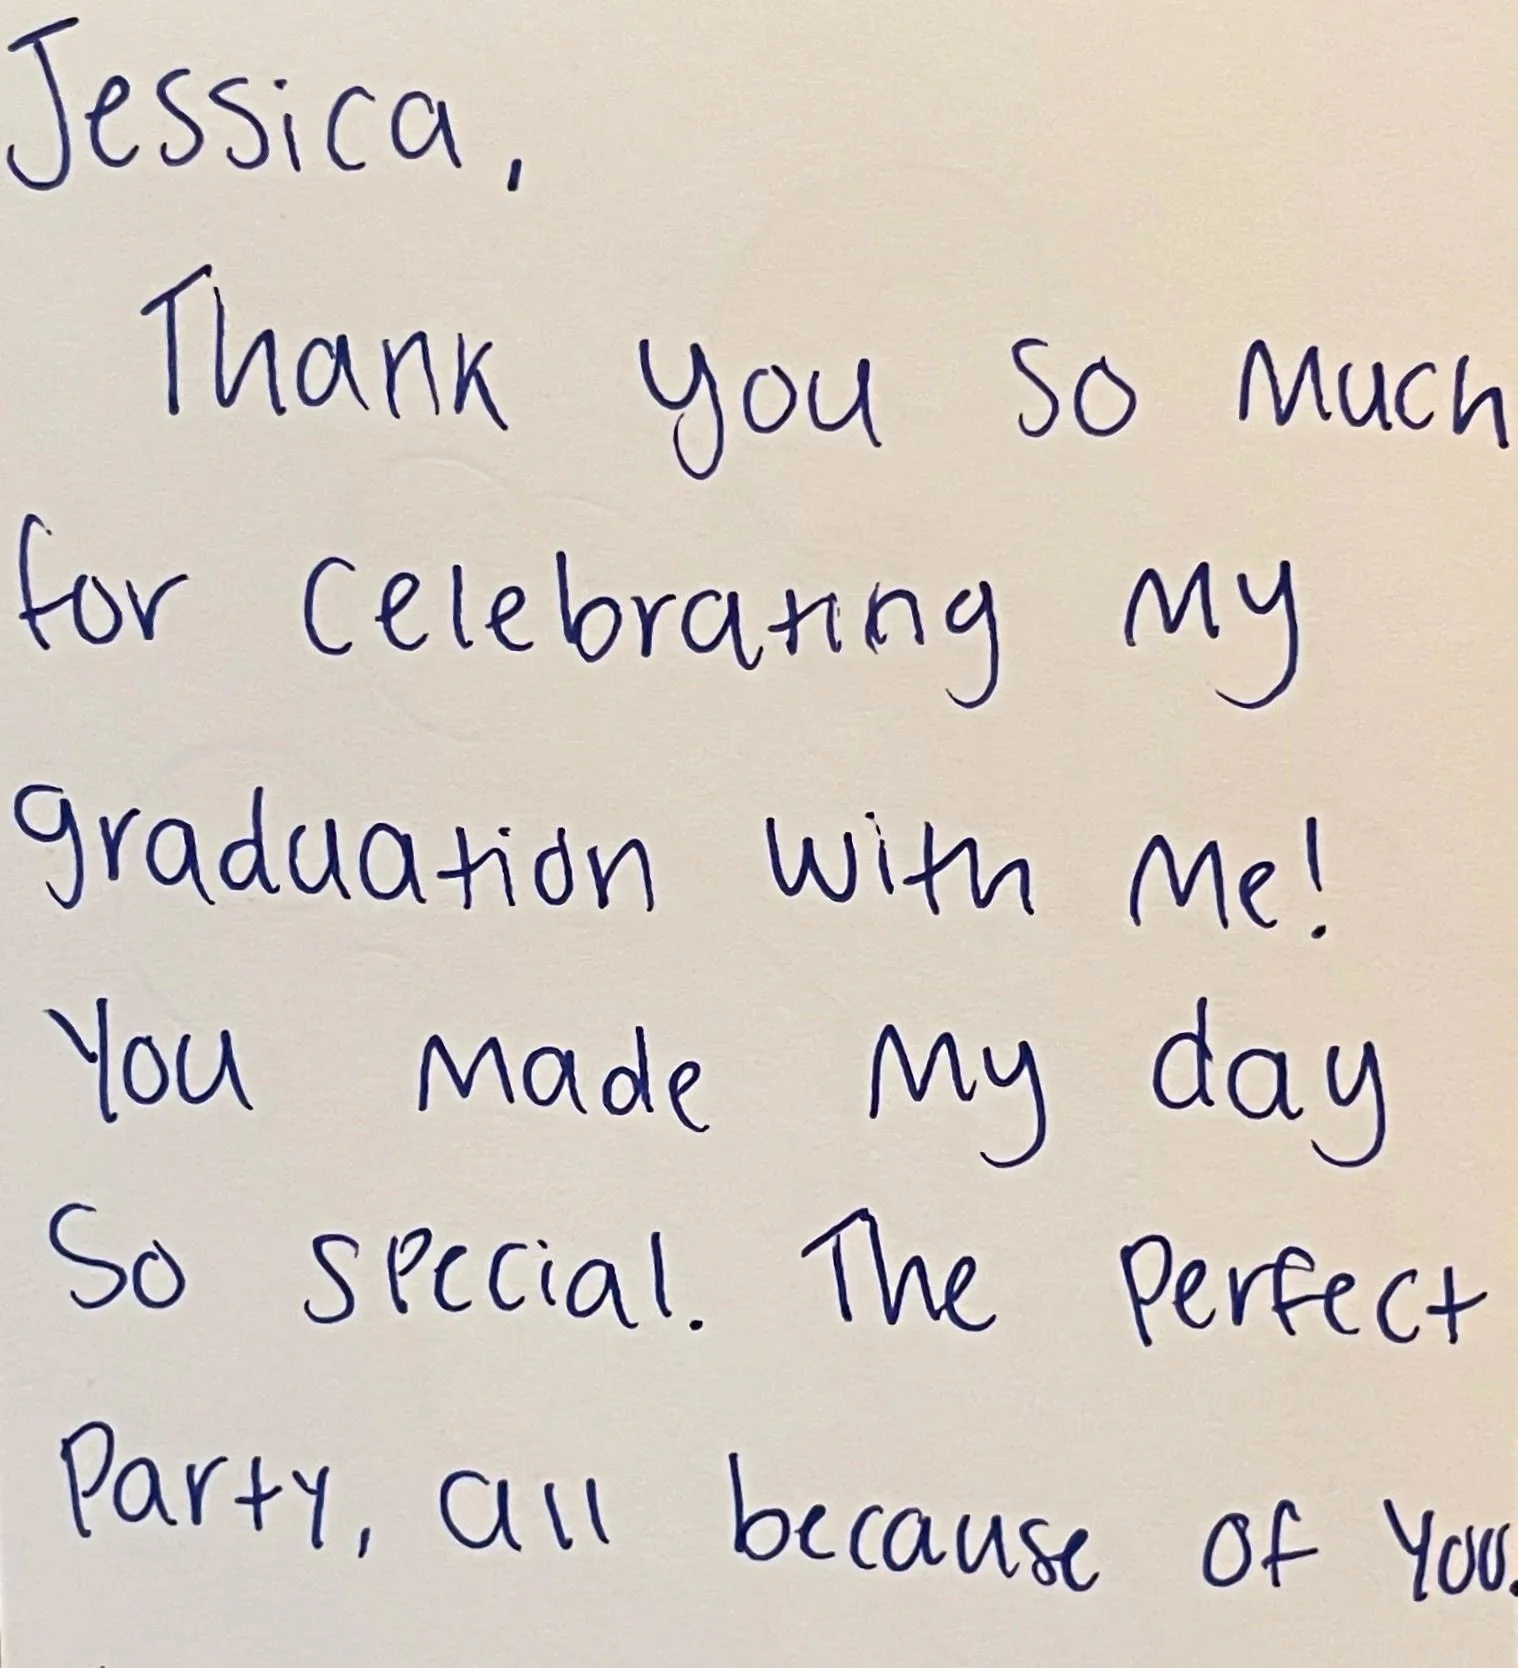 Jessica,
Thank you so much
for celebrating my
graduation with me!
You made my day
So special. The perfect
Party, all because of you.